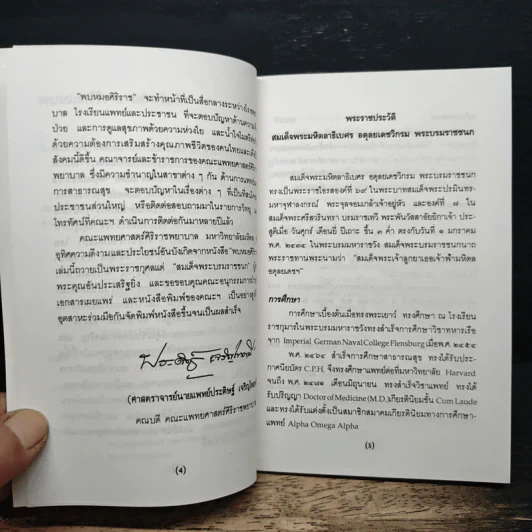 "พบหมอศิริราช" จะทำหน้าที่เป็นสื่อกลางระหว่างโรงพ
บาล โรงเรียนแพทย์และประชาชน ที่จะตอบปัญหาด้านความ
ป่วย และการดูแลสุขภาพด้วยความห่วงใย และน้ำใจไมตรี
ด้วยความต้องการเสริมสร้างคุณภาพชีวิตของคนไทยและ
สังคมนี้ดีขึ้น คณาจารย์และข้าราชการของคณะแพทยศาสตร์ศิริ
พยาบาล ซึ่งมีความชำนาญในสาขาต่าง ๆ กัน ด้านการแพทย์
การสาธารณสุข จะตอบปัญหาในเรื่องต่าง ๆ ที่เป็นที่สนใจ
ประชาชนส่วนใหญ่ หรือติดต่อสอบถามมาในรายการวิทยุ
โทรทัศน์ที่คณะฯ ดำเนินการติดต่อกันมาหลายปีแล้ว
คณะแพทยศาสตร์ศิริราชพยาบาล มหาวิทยาลัยมหิดล
อุทิศความดีงามและประโยชน์อันบังเกิดจากหนังสือ "พบหมอศิ
เล่มนี้ถวายเป็นพระราชกุศลแด่ "สมเด็จพระบรมราชชนก"
พระคุณอันประเสริฐยิ่ง และขอขอบคุณคณะอนุกรรมการฝ่าย
เอกสารเผยแพร่ และหนังสือพิมพ์ของคณะฯ เป็นอย่างสูง
อุตสาหะร่วมมือกันจัดพิมพ์หนังสือขึ้นจนเป็นผลสำเร็จ
(ศาสตราจารย์นายแพทย์ประดิษฐ์ เจริญไทย
คณบดี คณะแพทยศาสตร์ศิริราชพยาบาล
(4)
พระราชประวัติ
สมเด็จพระมหิตลาธิเบศร อดุลยเดชวิกรม พระบรมราชชนก
สมเด็จพระมหิตลาธิเบศร อดุลยเดชวิกรม พระบรมราชชนก
ทรงเป็นพระราชโอรสองค์ที่ ๖๙ ในพระบาทสมเด็จพระปรมินทร-
มหาจุฬาลงกรณ์ พระจุลจอมเกล้าเจ้าอยู่หัว และองค์ที่ ๗ ใน
สมเด็จพระศรีสวรินทรา บรมราชเทวี พระพันวัสสาอัยยิกาเจ้า ประ-
สูติเมื่อ วันศุกร์ เดือนยี่ ปีเถาะ ขึ้น ๓ ค่ำ ตรงกับวันที่ ๑ มกราคม
พ.ศ. ๒๔๓๔ ในพระบรมมหาราชวัง สมเด็จพระบรมราชชนกนาถ
พระราชทานพระนามว่า "สมเด็จพระเจ้าลูกยาเธอเจ้าฟ้ามหิดล
อดุลยเดชฯ"
การศึกษา
การศึกษาเบื้องต้นเมื่อทรงพระเยาว์ ทรงศึกษา ณ โรงเรียน
ราชกุมารในพระบรมมหาราชวังทรงสำเร็จการศึกษาวิชาทหารเรือ
จาก Imperial German Naval College Flensburg เมื่อ พ.ศ. ๒๔๕๔
พ.ศ. ๒๔๖๔ สำเร็จการศึกษาสาธารณสุข ทรงได้รับประ-
กาศนียบัตร C.P.H. จึงทรงศึกษาแพทย์ต่อที่มหาวิทยาลัย Harvard
จนถึง พ.ศ. ๒๔๗๑ เดือนมิถุนายน ทรงสำเร็จวิชาแพทย์ ทรงได้
รับปริญญา Doctor of Medicine (M.D.) เกียรตินิยมชั้น Cum Laude
และทรงได้รับแต่งตั้งเป็นสมาชิกสมาคมเกียรตินิยมทางการศึกษา-
แพทย์ Alpha Omega Alpha
(5)